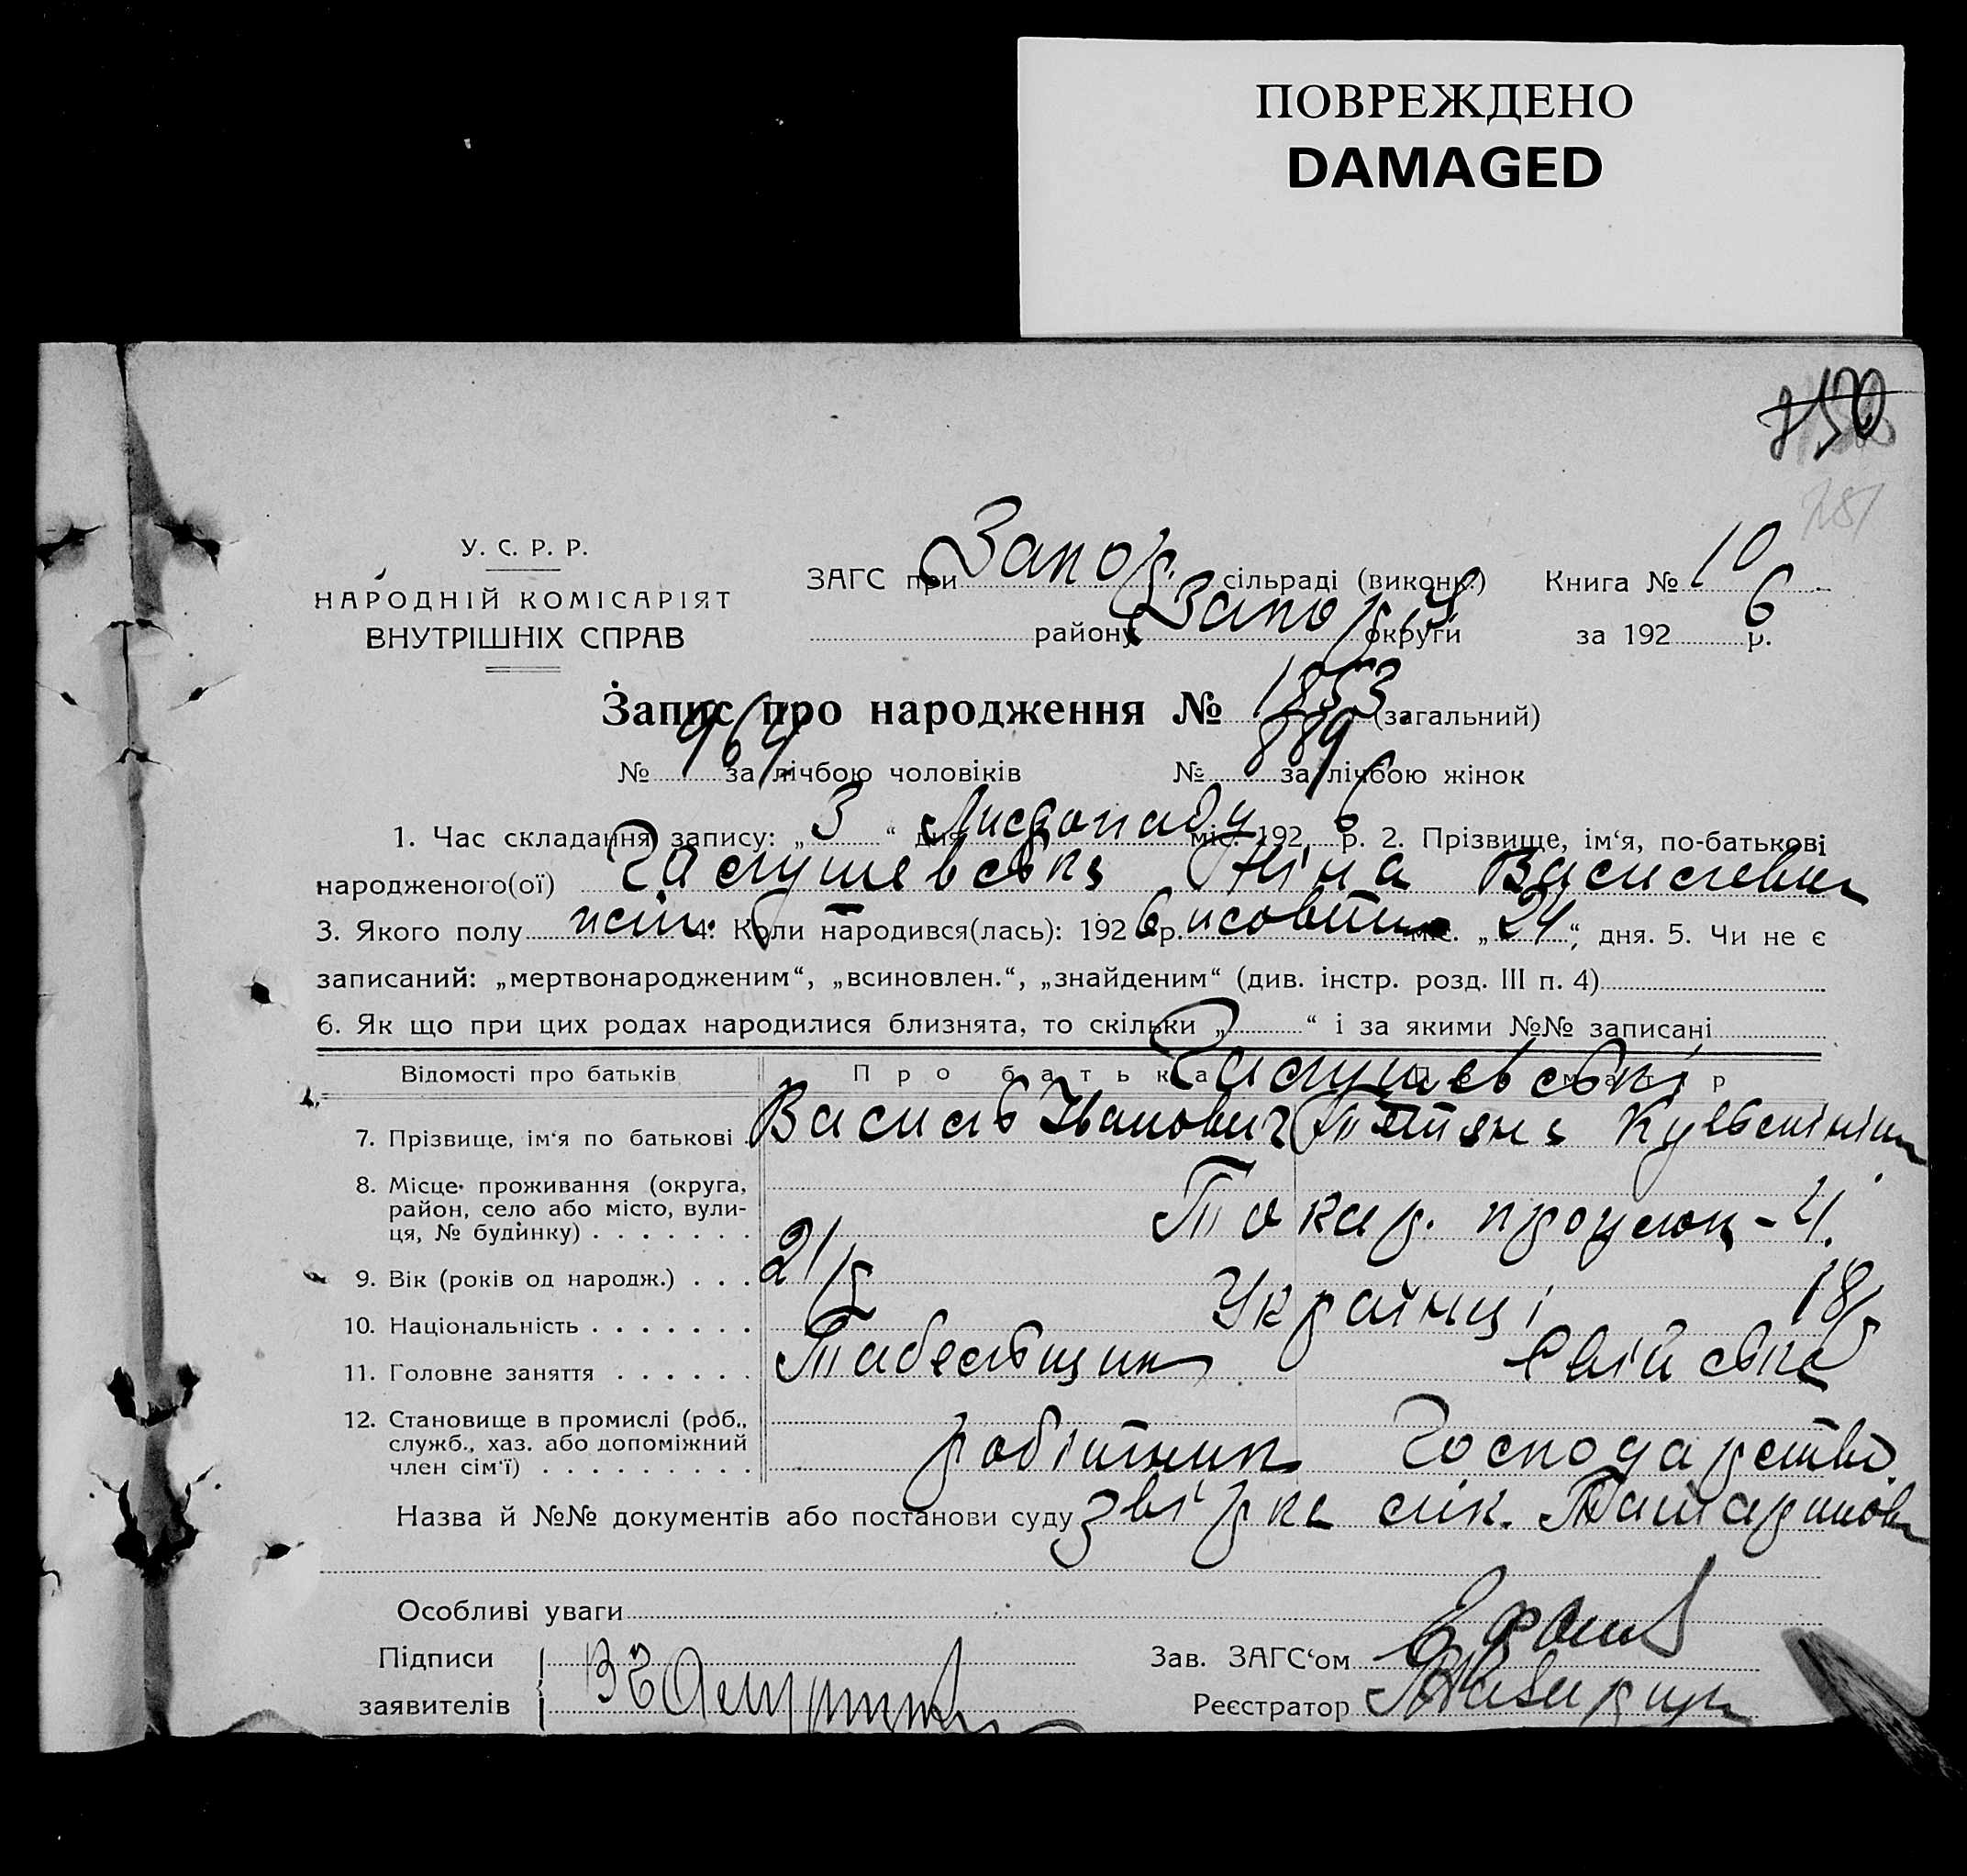 ПОВРЕЖДЕНО
DAMAGED
750
751
У. С. Р. Р.
НАРОДНІЙ КОМІСАРІЯТ
ВНУТРІШНІХ СПРАВ
ЗАГС при Запор. сільраді (виконк.) Книга № 10
району Запор. округи за 1926 р.
Запис про народження № 1853 (загальний)
№ 964 за лічбою чоловіків № 889 за лічбою жінок
1. Час складання запису: „ 3 “ дня Листопаду міс. 1926 р. 2. Прізвище, ім‘я, по-батькові
народженого(ої) Галушевська Ніна Василевна
3. Якого полу жін. 4. Коли народився(лась): 1926 р. жовтня міс. „ 24 “, дня. 5. Чи не є
записаний: „мертвонародженим“, „всиновлен.“, „знайденим“ (див. інстр. розд. III п. 4)
6. Як що при цих родах народилися близнята, то скільки „ “ і за якими №№ записані
Відомості про батьків Про батька Про матір
Галушевські
7. Прізвище, ім‘я по батькові Василь Іванович Тетяна
8. Місце проживання (округа,
район, село або місто, вули-
ця, № будинку) 4.
9. Вік (років од народж.) 21 р 18 р
10. Національність Українці
11. Головне заняття Табельщик Свійське
12. Становище в промислі (роб.,
служб., хаз. або допоміжний
член сім‘ї) робітник Господарство.
Назва й №№ документів або постанови суду звірка лік. Татаринова
Особливі уваги
Підписи
заявителів
Зав. ЗАГС‘ом
Реєстратор